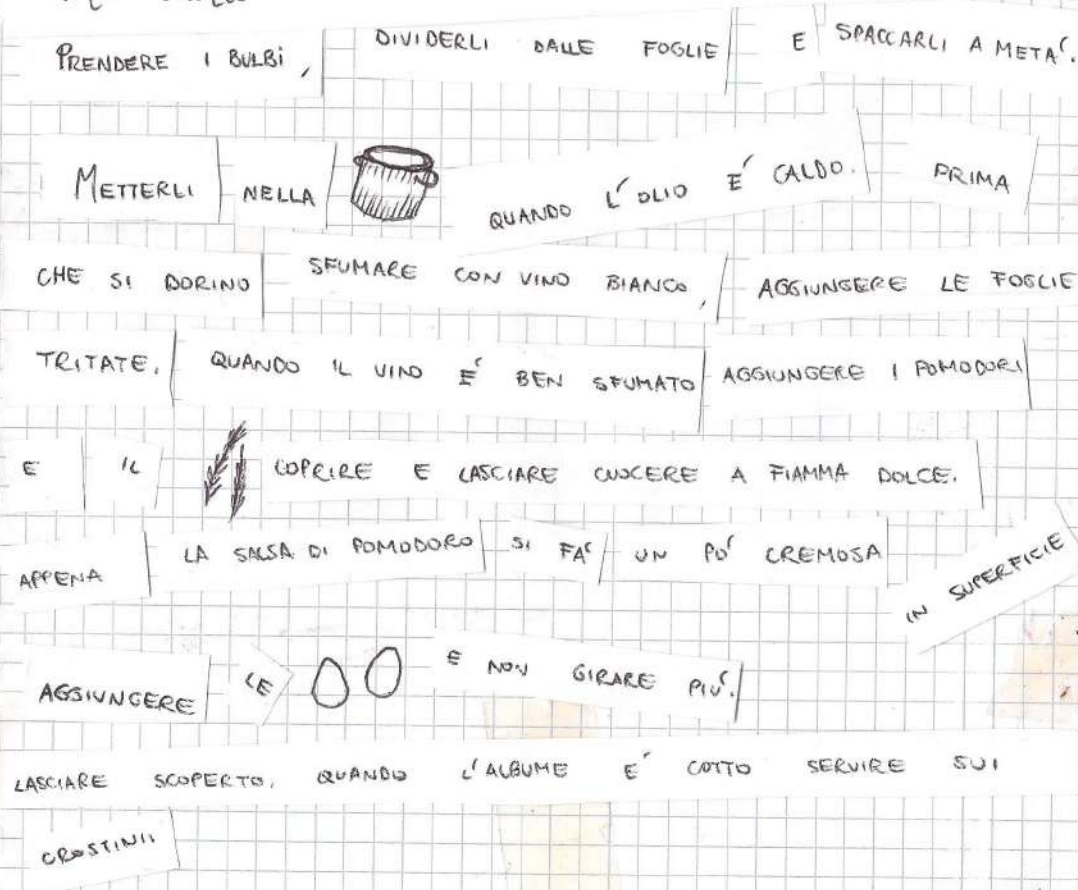 PRENDERE I BULBI, DIVIDERLI DALLE FOGLIE E SPACCARLI A META'.
METTERLI NELLA QUANDO L'OLIO E' CALDO. PRIMA
CHE SI DORINO SFUMARE CON VINO BIANCO, AGGIUNGERE LE FOGLIE
TRITATE. QUANDO IL VINO E' BEN SFUMATO AGGIUNGERE I POMODORI
E IL COPRIRE E LASCIARE CUOCERE A FIAMMA DOLCE.
APPENA LA SALSA DI POMODORO SI FA' UN PO' CREMOSA IN SUPERFICIE
AGGIUNGERE LE E NON GIRARE PIU'.
LASCIARE SCOPERTO. QUANDO L'ALBUME E' COTTO SERVIRE SUI
CROSTINI!